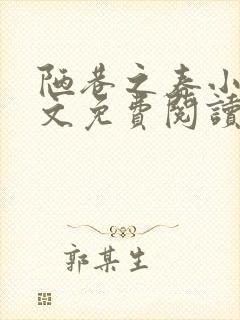 陋巷之春小
文免費閱讀
郭某生